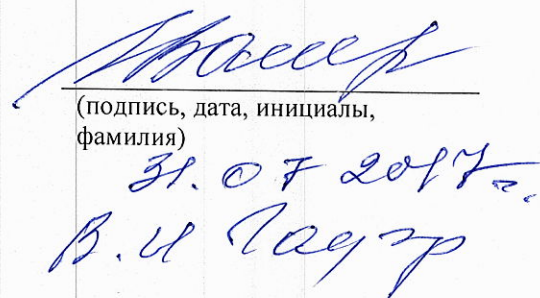 (подпись, дата, инициалы,
фамилия)
31.07 2017 г.
В. И Гаузр